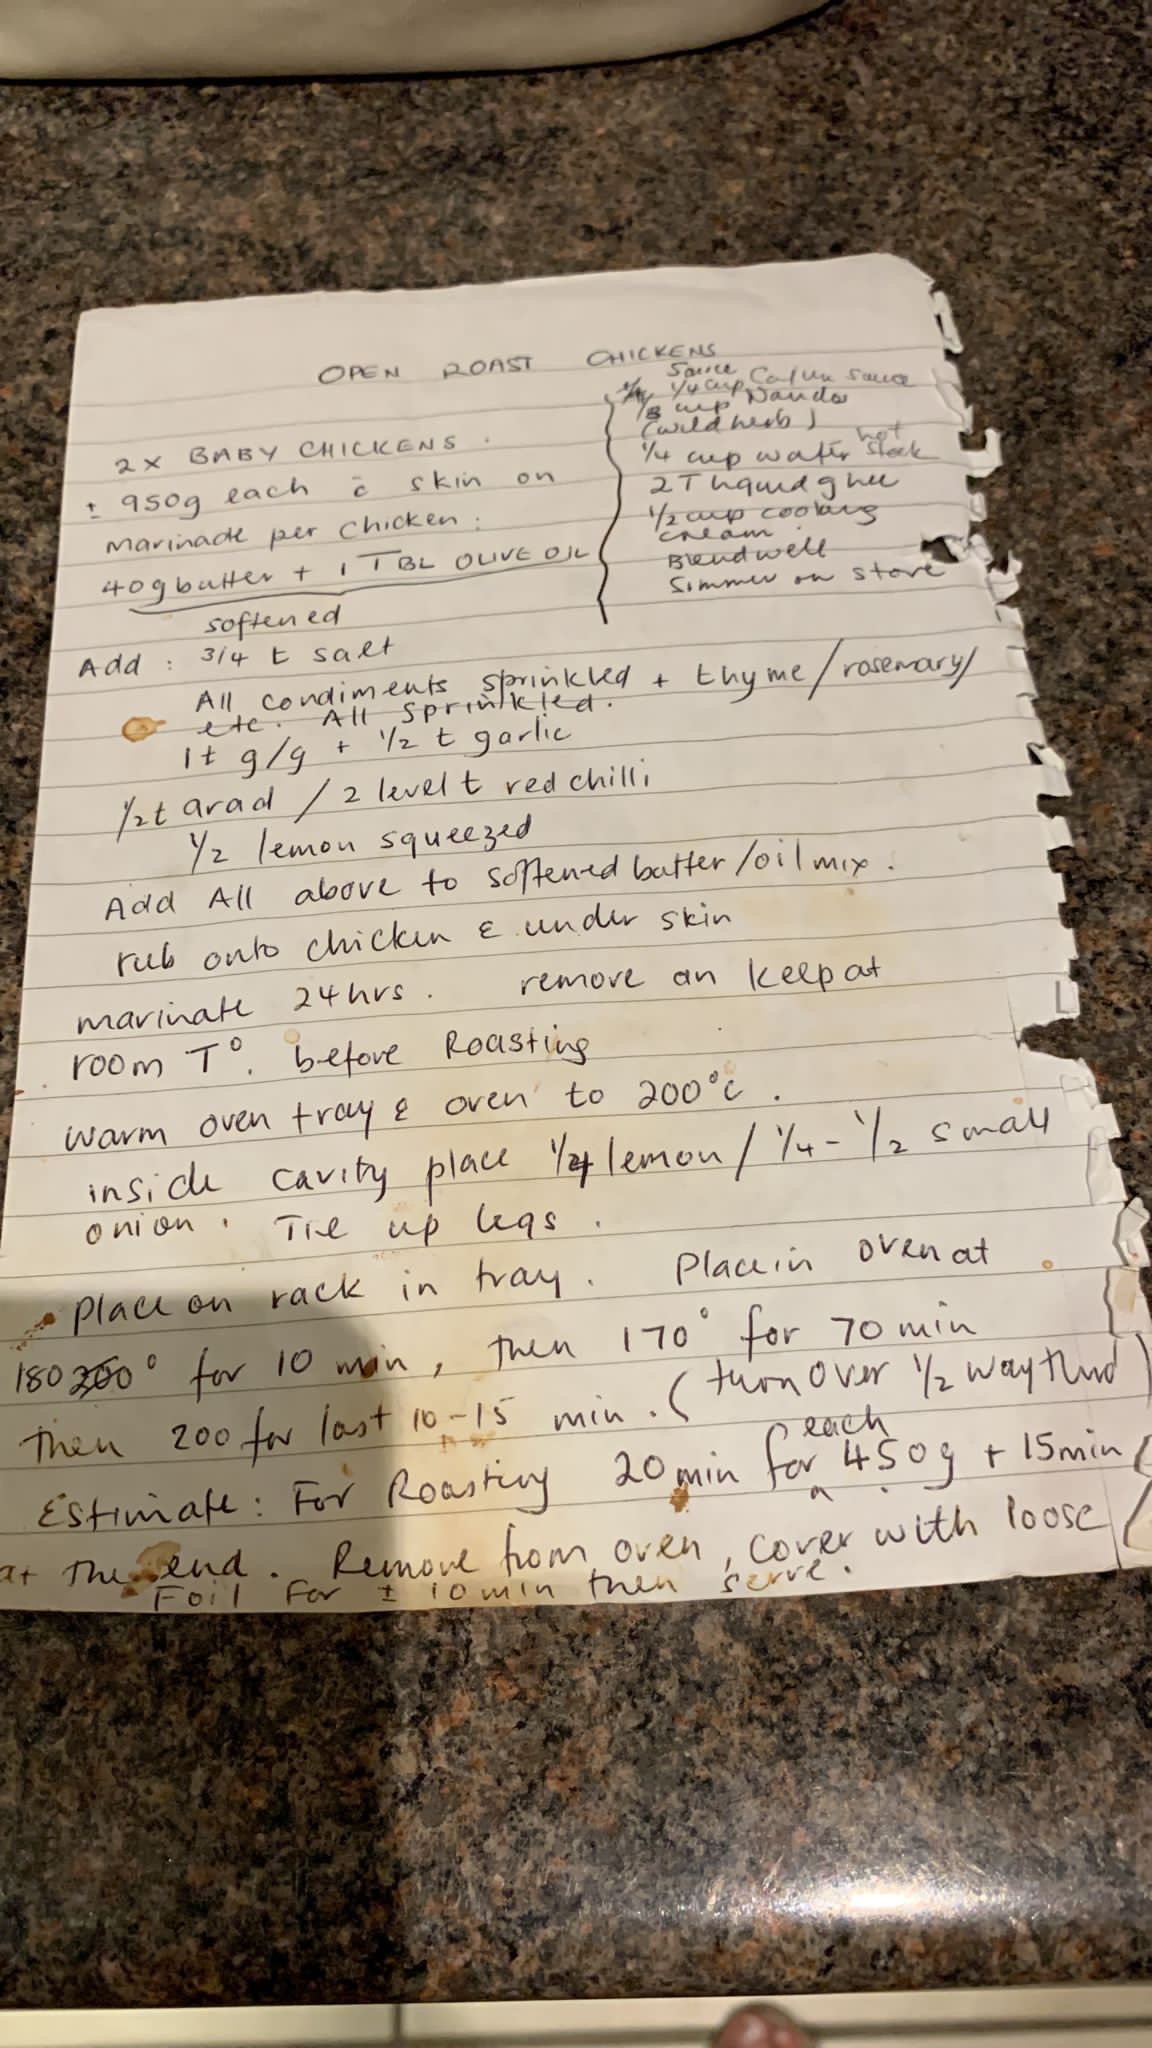 OPEN ROAST CHICKENS
2 x BABY CHICKENS.
± 950g each c̄ skin on
marinade per chicken:
40g butter + 1 TBL OLIVE OIL
softened
Sauce
1/4 cup sauce
1/8 cup Nandos
(wild herb)
1/4 cup water hot stock
2 T liquid ghee
1/2 cup cooking
cream
Blend well
Simmer on stove
Add: 3/4 t salt
All condiments sprinkled + thyme/rosemary/
etc. All sprinkled.
1t g/g + 1/2 t garlic
1/2t arad / 2 level t red chilli
1/2 lemon squeezed
Add All above to softened butter/oil mix.
rub onto chicken & under skin
marinate 24hrs. remove an keep at
room T°. before Roasting
warm oven tray & oven to 200°c.
inside cavity place 1/4 lemon / 1/4 - 1/2 small
onion. Tie up legs.
Place on rack in tray. Place in oven at
180 200° for 10 min, then 170° for 70 min
then 200 for last 10-15 min. (turn over 1/2 way thru)
Estimate: For Roasting 20 min for each 450g + 15min
at the end. Remove from oven, cover with loose
Foil For ± 10 min then serve.